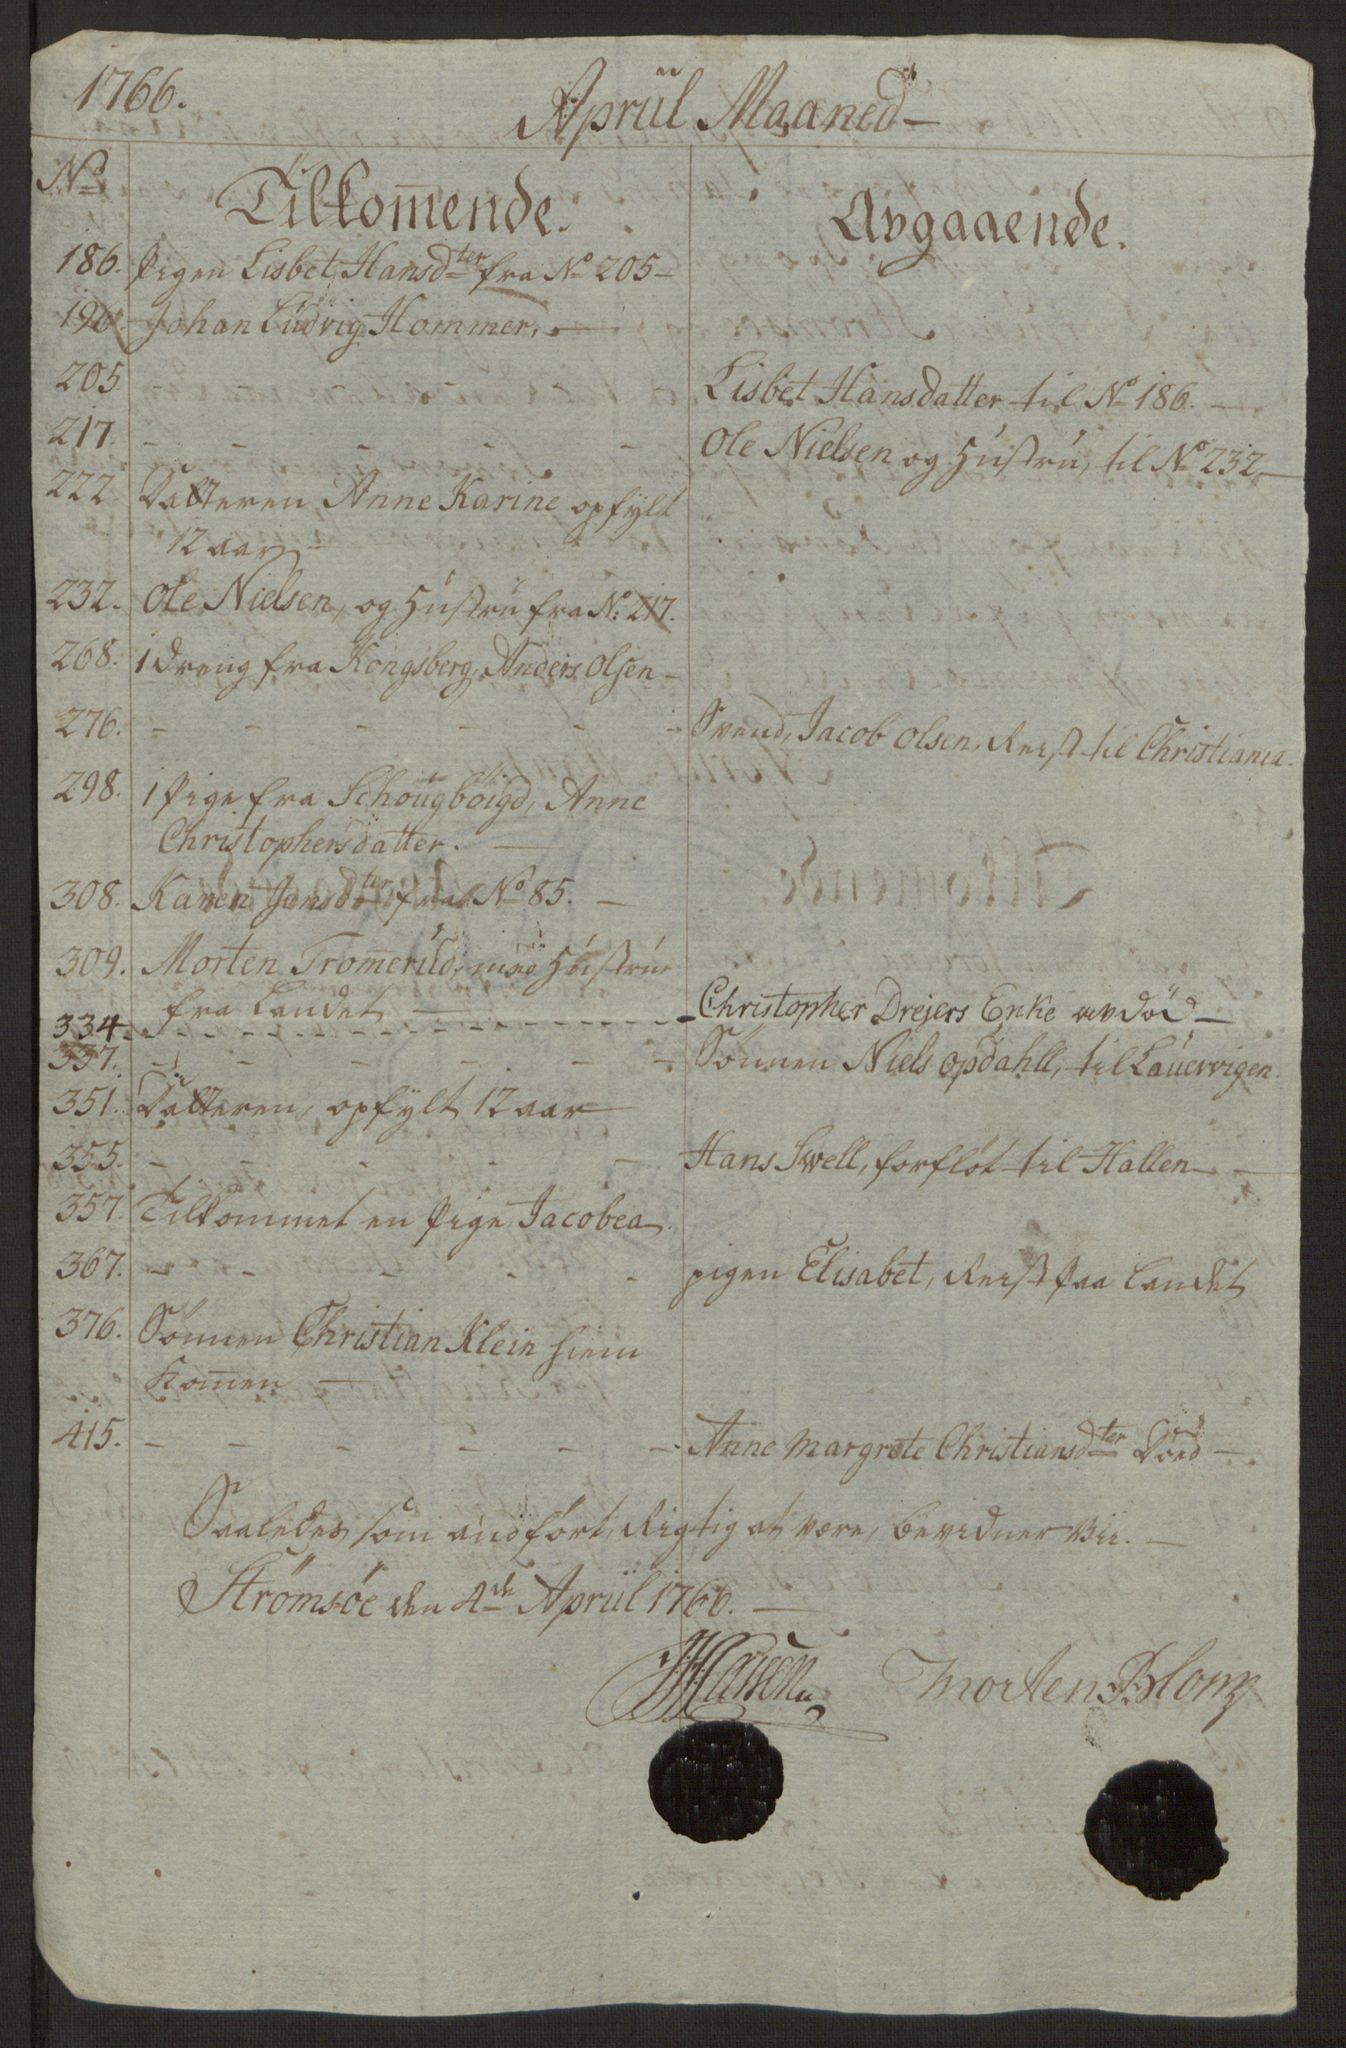 1766.
Apriil Maaned
No
Tilkom̄ende.
Avgaaende.
186. Pigen Lisbet Hansdter fra No 205
196. Johan Ludvig Hommer,
205. Lisbet Hansdatter til No 186.
217. Ole Nielsen og Hustru, til No 232
222 Datteren Anne Karine opfylt
12 aar
232. Ole Nielsen, og Hustru fra No: 217.
268. 1 Dreng fra Kongsberg, Anders Olsen
276. Svend, Jacob Olsen, Reist til Christiania.
298. 1 Pige fra Schougböigd, Anne
Christophersdatter.
308. Karen Jansdter fra No 85.
309. Morten Trom̄erud, med Hustrue
fra Landet
334 Christopher Drejers Enke avdöd
337. Sönnen Niels Opdahll, til Lauervigen
351. Datteren, opfylt 12 aar
355. Hans Swell, forflöt til Hallen
357. Tilkommet en Pige Jacobea
367. pigen Elisabet, Reist paa Landet
376. Sönnen Christian Klein hiem
Kom̄en
415. Anne Margrete Christiansdter Döed
Saaledes som anfört, Rigtig at være, bevidner Vii.
Strömsöe den 4de Apriil 1766.
Morten Blom